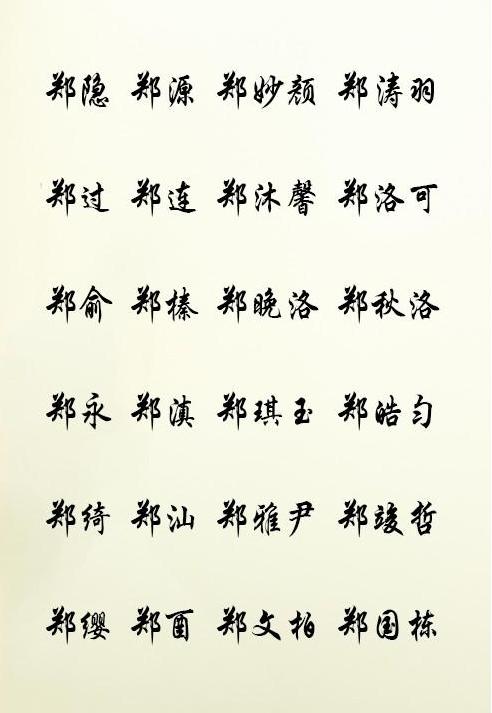 郑隐 郑源 郑妙颜 郑涛羽
郑过 郑连 郑沐馨 郑洛可
郑俞 郑榛 郑晚洛 郑秋洛
郑永 郑滇 郑琪玉 郑皓匀
郑绮 郑汕 郑雅尹 郑竣哲
郑缨 郑酉 郑文柏 郑国栋